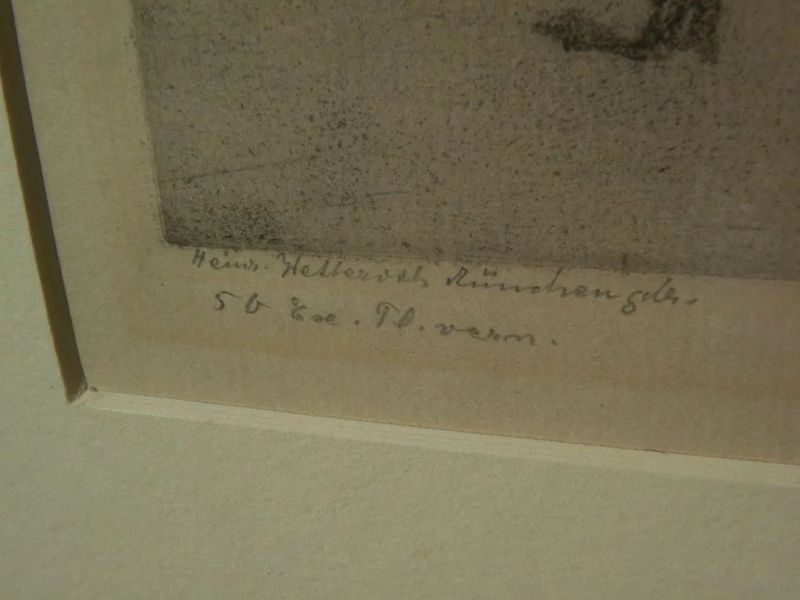 Heinr. Wetteroth München gdr.
50 Ex. Pl. vern.